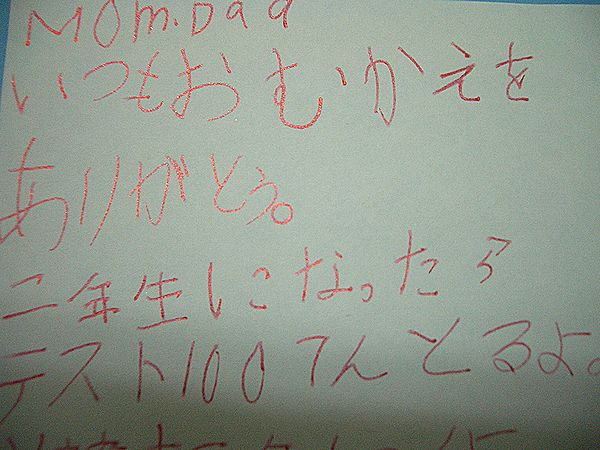 Mom.Dad
いつもおむかえを
ありがとう。
二年生になったら
テスト100てんとるよ。